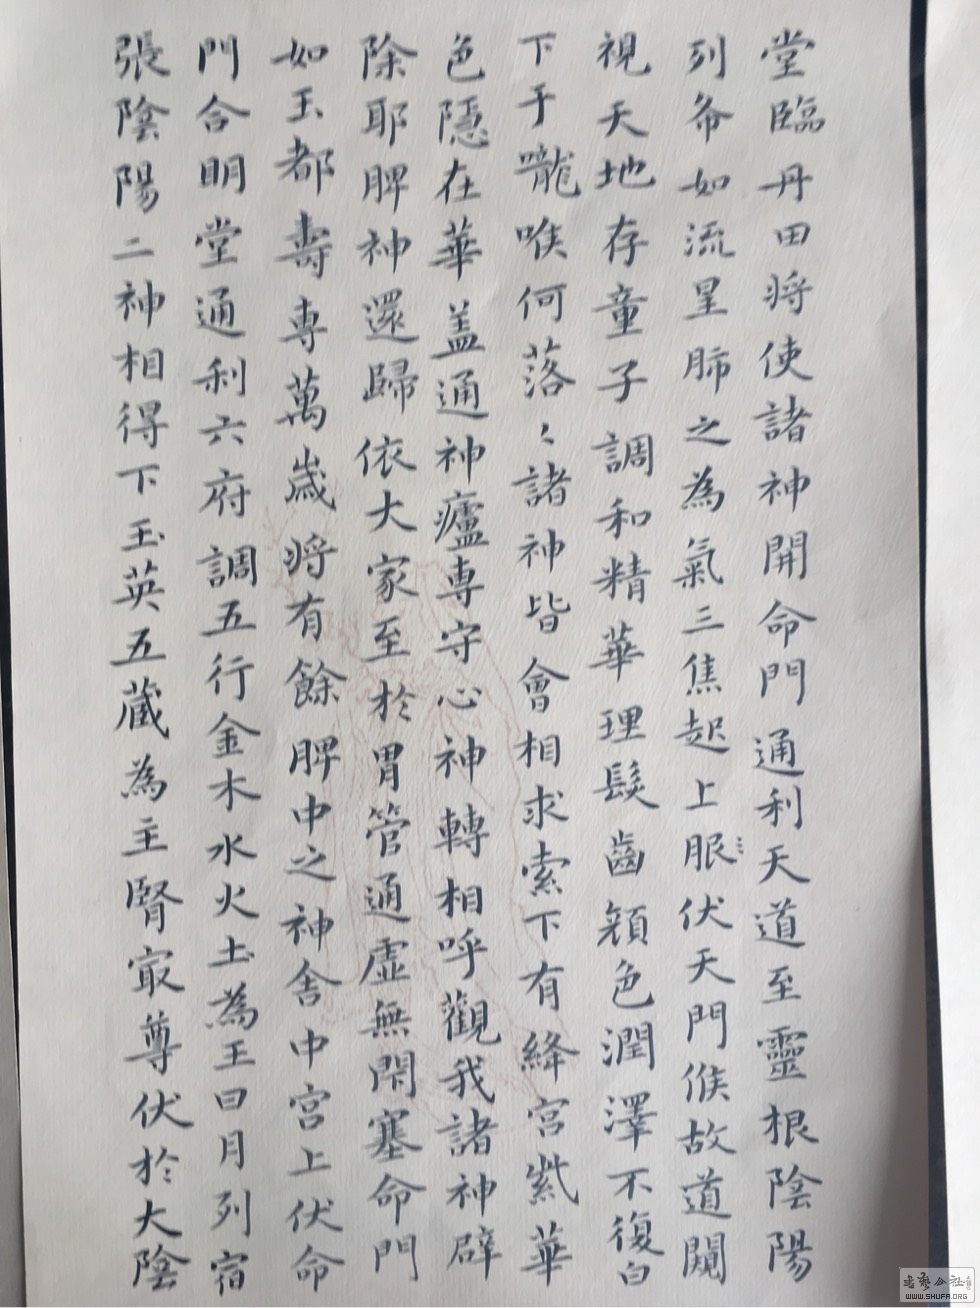 堂臨丹田将使諸神開命門通利天道至靈根陰陽
列布如流星肺之為氣三焦起上服伏天門候故道闚
視天地存童子調和精華理髮齒顔色潤澤不復白
下于嚨喉何落々諸神皆會相求索下有絳宮紫華
色隱在華盖通神廬専守心神轉相呼觀我諸神辟
除耶脾神還歸依大家至於胃管通虛無閇塞命門
如玉都壽専萬歲将有餘脾中之神舍中宮上伏命
門合明堂通利六府調五行金木水火土為王日月列宿
張陰陽二神相得下玉英五藏為主腎㝡尊伏於大陰
書藝公社
WWW.SHUFA.ORG